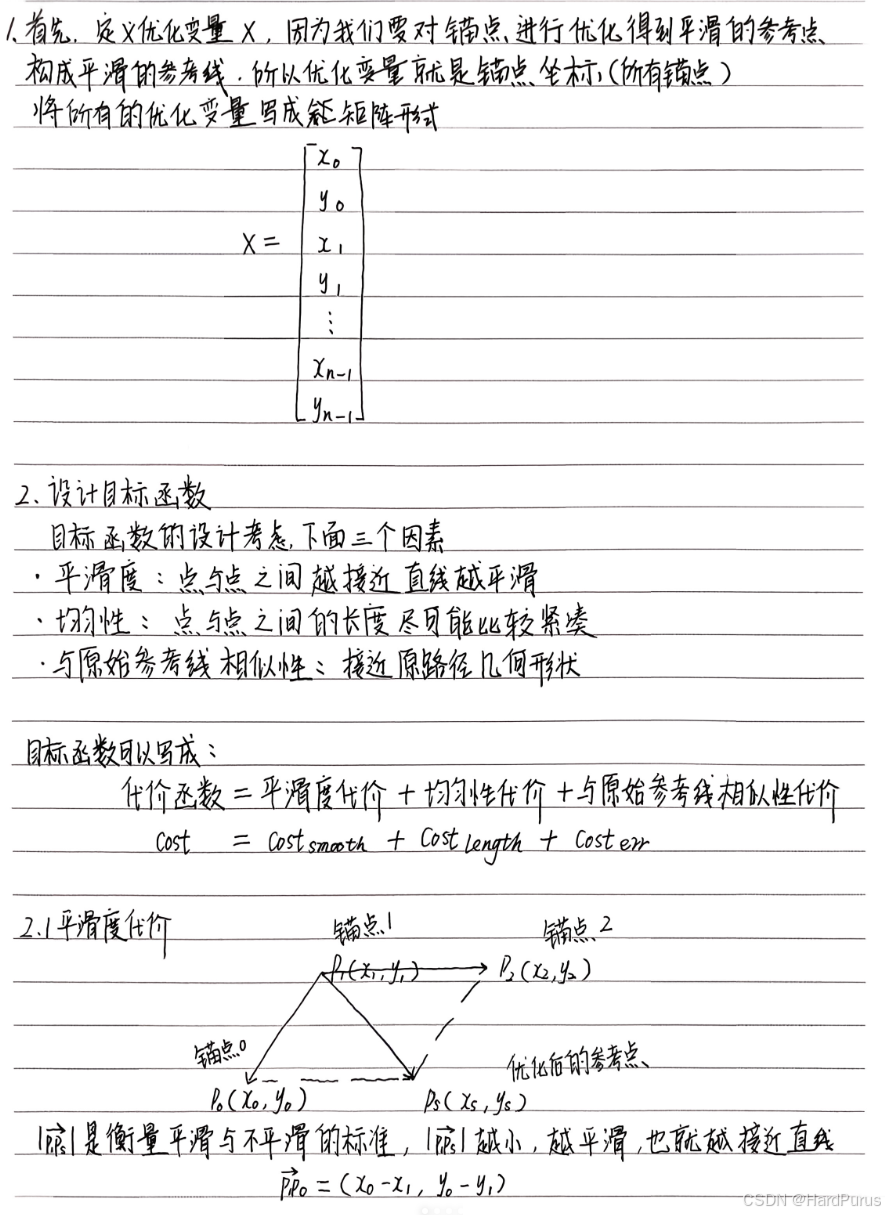 1.首先,定义优化变量X,因为我们要对锚点进行优化得到平滑的参考点
构成平滑的参考线.所以优化变量就是锚点坐标(所有锚点)
将所有的优化变量写成矩阵形式
X = [x₀
y₀
x₁
y₁
⋮
xₙ₋₁
yₙ₋₁]
2.设计目标函数
目标函数的设计考虑下面三个因素
·平滑度:点与点之间越接近直线越平滑
·均匀性:点与点之间的长度尽可能比较紧凑
·与原始参考线相似性:接近原路径几何形状
目标函数可以写成:
代价函数=平滑度代价+均匀性代价+与原始参考线相似性代价
cost = cost smooth + cost length + cost err
2.1平滑度代价
锚点1 锚点2
P₁(x₁,y₁) P₂(x₂,y₂)
锚点0 优化后的参考点
P₀(x₀,y₀) Ps(xs,ys)
|PPs|是衡量平滑与不平滑的标准,|PPs|越小,越平滑,也就越接近直线
PP₀=(x₀-x₁, y₀-y₁)
CSDN @HardPurus